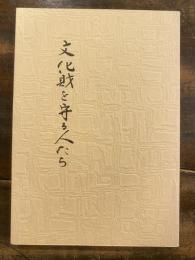 文化財を守る人たち